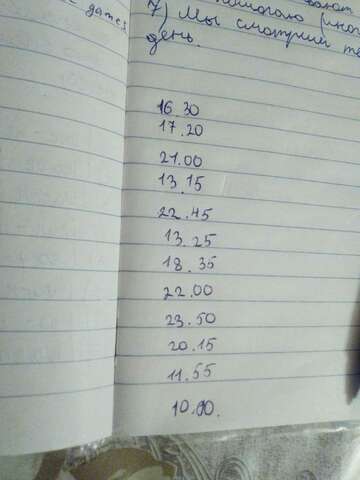 dates
помогаю
7) Мы смотрим
день.
16.30
17.20
21.00
13.15
22.45
13.25
18.35
22.00
23.50
20.15
11.55
10.00.